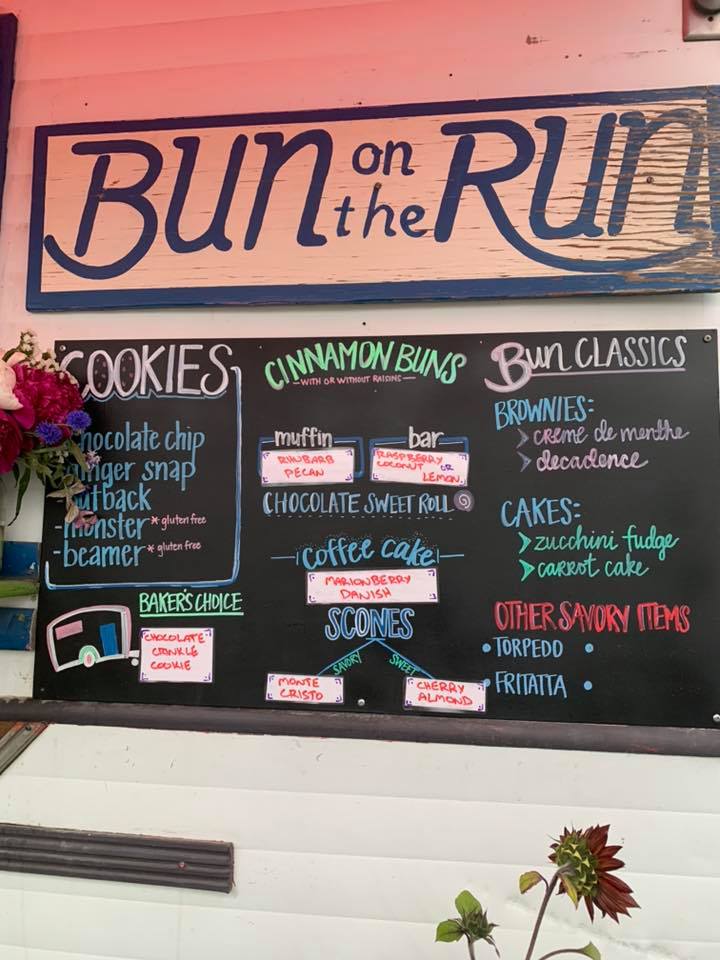 BUN on the RUN
COOKIES
chocolate chip
ginger snap
outback
-monster *gluten free
-beamer *gluten free
BAKER'S CHOICE
CHOCOLATE
CRINKLE
COOKIE
CINNAMON BUNS
— WITH OR WITHOUT RAISINS —
muffin
RHUBARB
PECAN
bar
RASPBERRY
COCONUT OR
LEMON
CHOCOLATE SWEET ROLL
coffee cake
MARIONBERRY
DANISH
SCONES
SAVORY
SWEET
MONTE
CRISTO
CHERRY
ALMOND
Bun CLASSICS
BROWNIES:
> creme de menthe
> decadence
CAKES:
> zucchini fudge
> carrot cake
OTHER SAVORY ITEMS
• TORPEDO •
• FRITATTA •